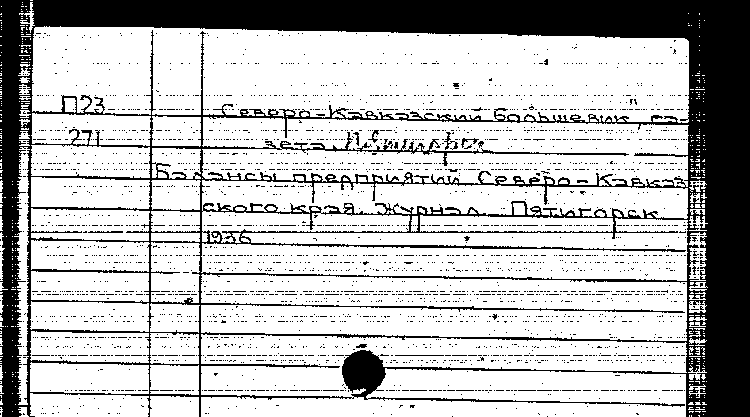 П23 Северо-Кавказский большевик", га-
271 зета. Пятигорск
Балансы предприятий Северо-Кавказ
ского края. Журнал. Пятигорск
1936